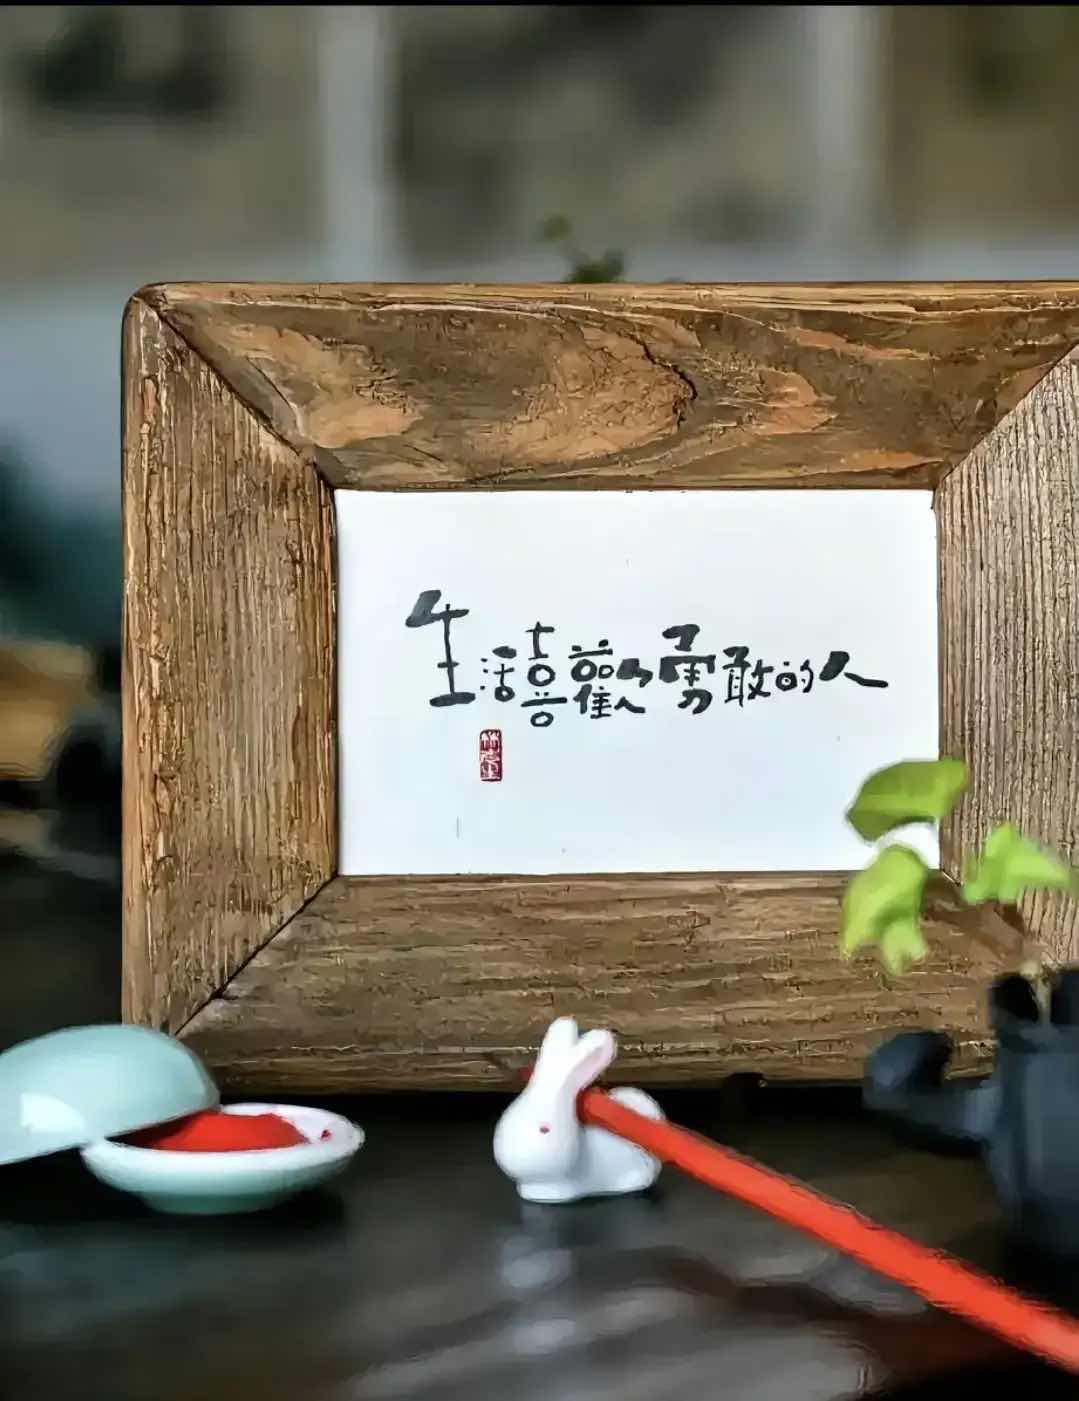 生活喜歡勇敢的人